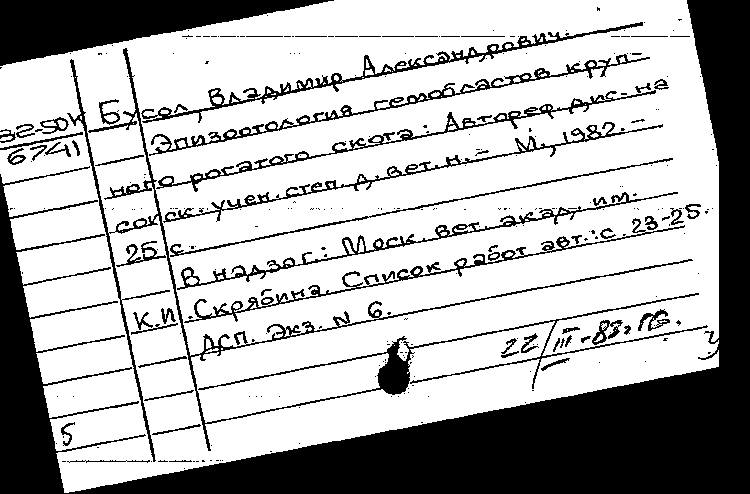 Бусол, Владимир Александрович.
32-50К
6741
Эпизоотология гемобластов круп-
ного рогатого скота: Автореф. дис. на
соиск. учен. степ. д. вет. н. - М., 1982. -
25 с.
В надзаг.: Моск. вет. акад. им.
К.И. Скрябина. Список работ авт.: с. 23-25.
ДСП. Экз. N 6.
22/III-83г.
5